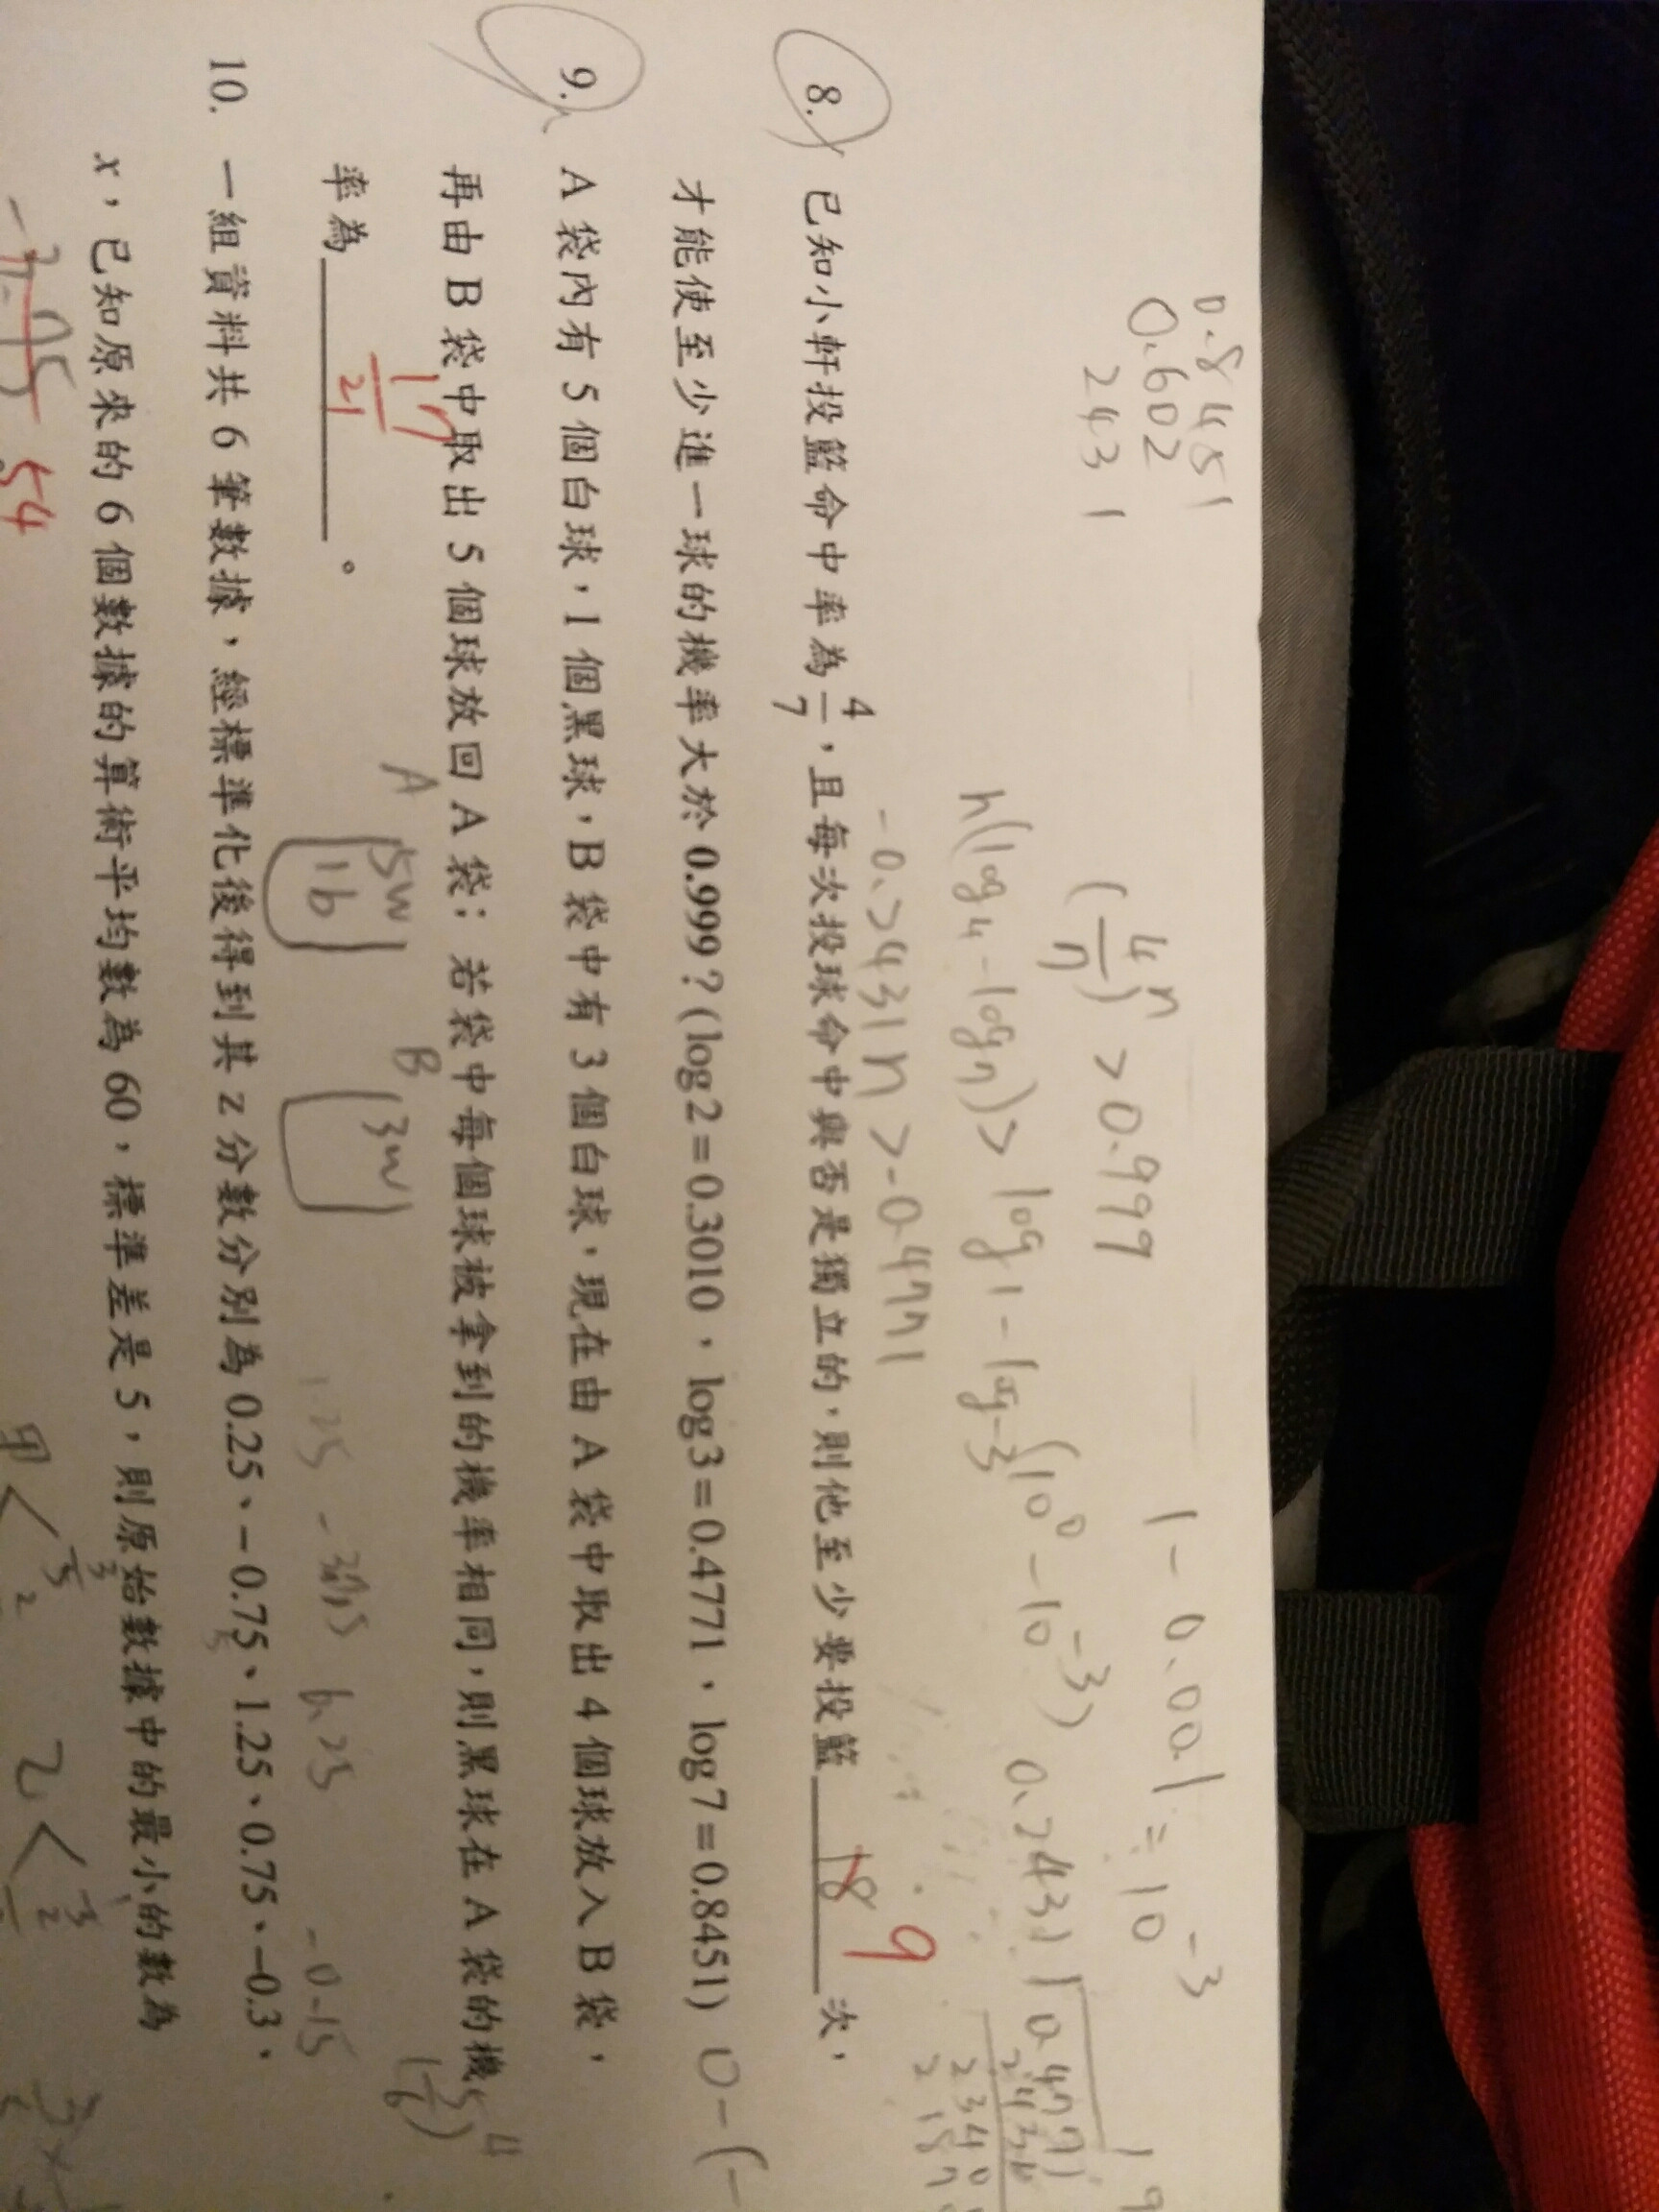 0.8451
0.602
2431
(4/7)^n > 0.999
1 - 0.001 = 10^-3
n(log4 - log7) > log1 - log-3
(10^0 - 10^-3)
-0.2431n > -0.4771
0.2431
0.4771
8. 已知小軒投籃命中率為 4/7，且每次投球命中與否是獨立的，則他至少要投籃 18 9 次，
才能使至少進一球的機率大於 0.999？(log2＝0.3010，log3＝0.4771，log7＝0.8451)
9. A 袋內有 5 個白球，1 個黑球，B 袋中有 3 個白球，現在由 A 袋中取出 4 個球放入 B 袋，
再由 B 袋中取出 5 個球放回 A 袋；若袋中每個球被拿到的機率相同，則黑球在 A 袋的機
率為 17/21 。
A 5w 1b B 3w
10. 一組資料共 6 筆數據，經標準化後得到其 z 分數分別為 0.25、－0.75、1.25、0.75、－0.3、
1.25 6.25 -0.15
x，已知原來的 6 個數據的算術平均數為 60，標準差是 5，則原始數據中的最小的數為
54
甲